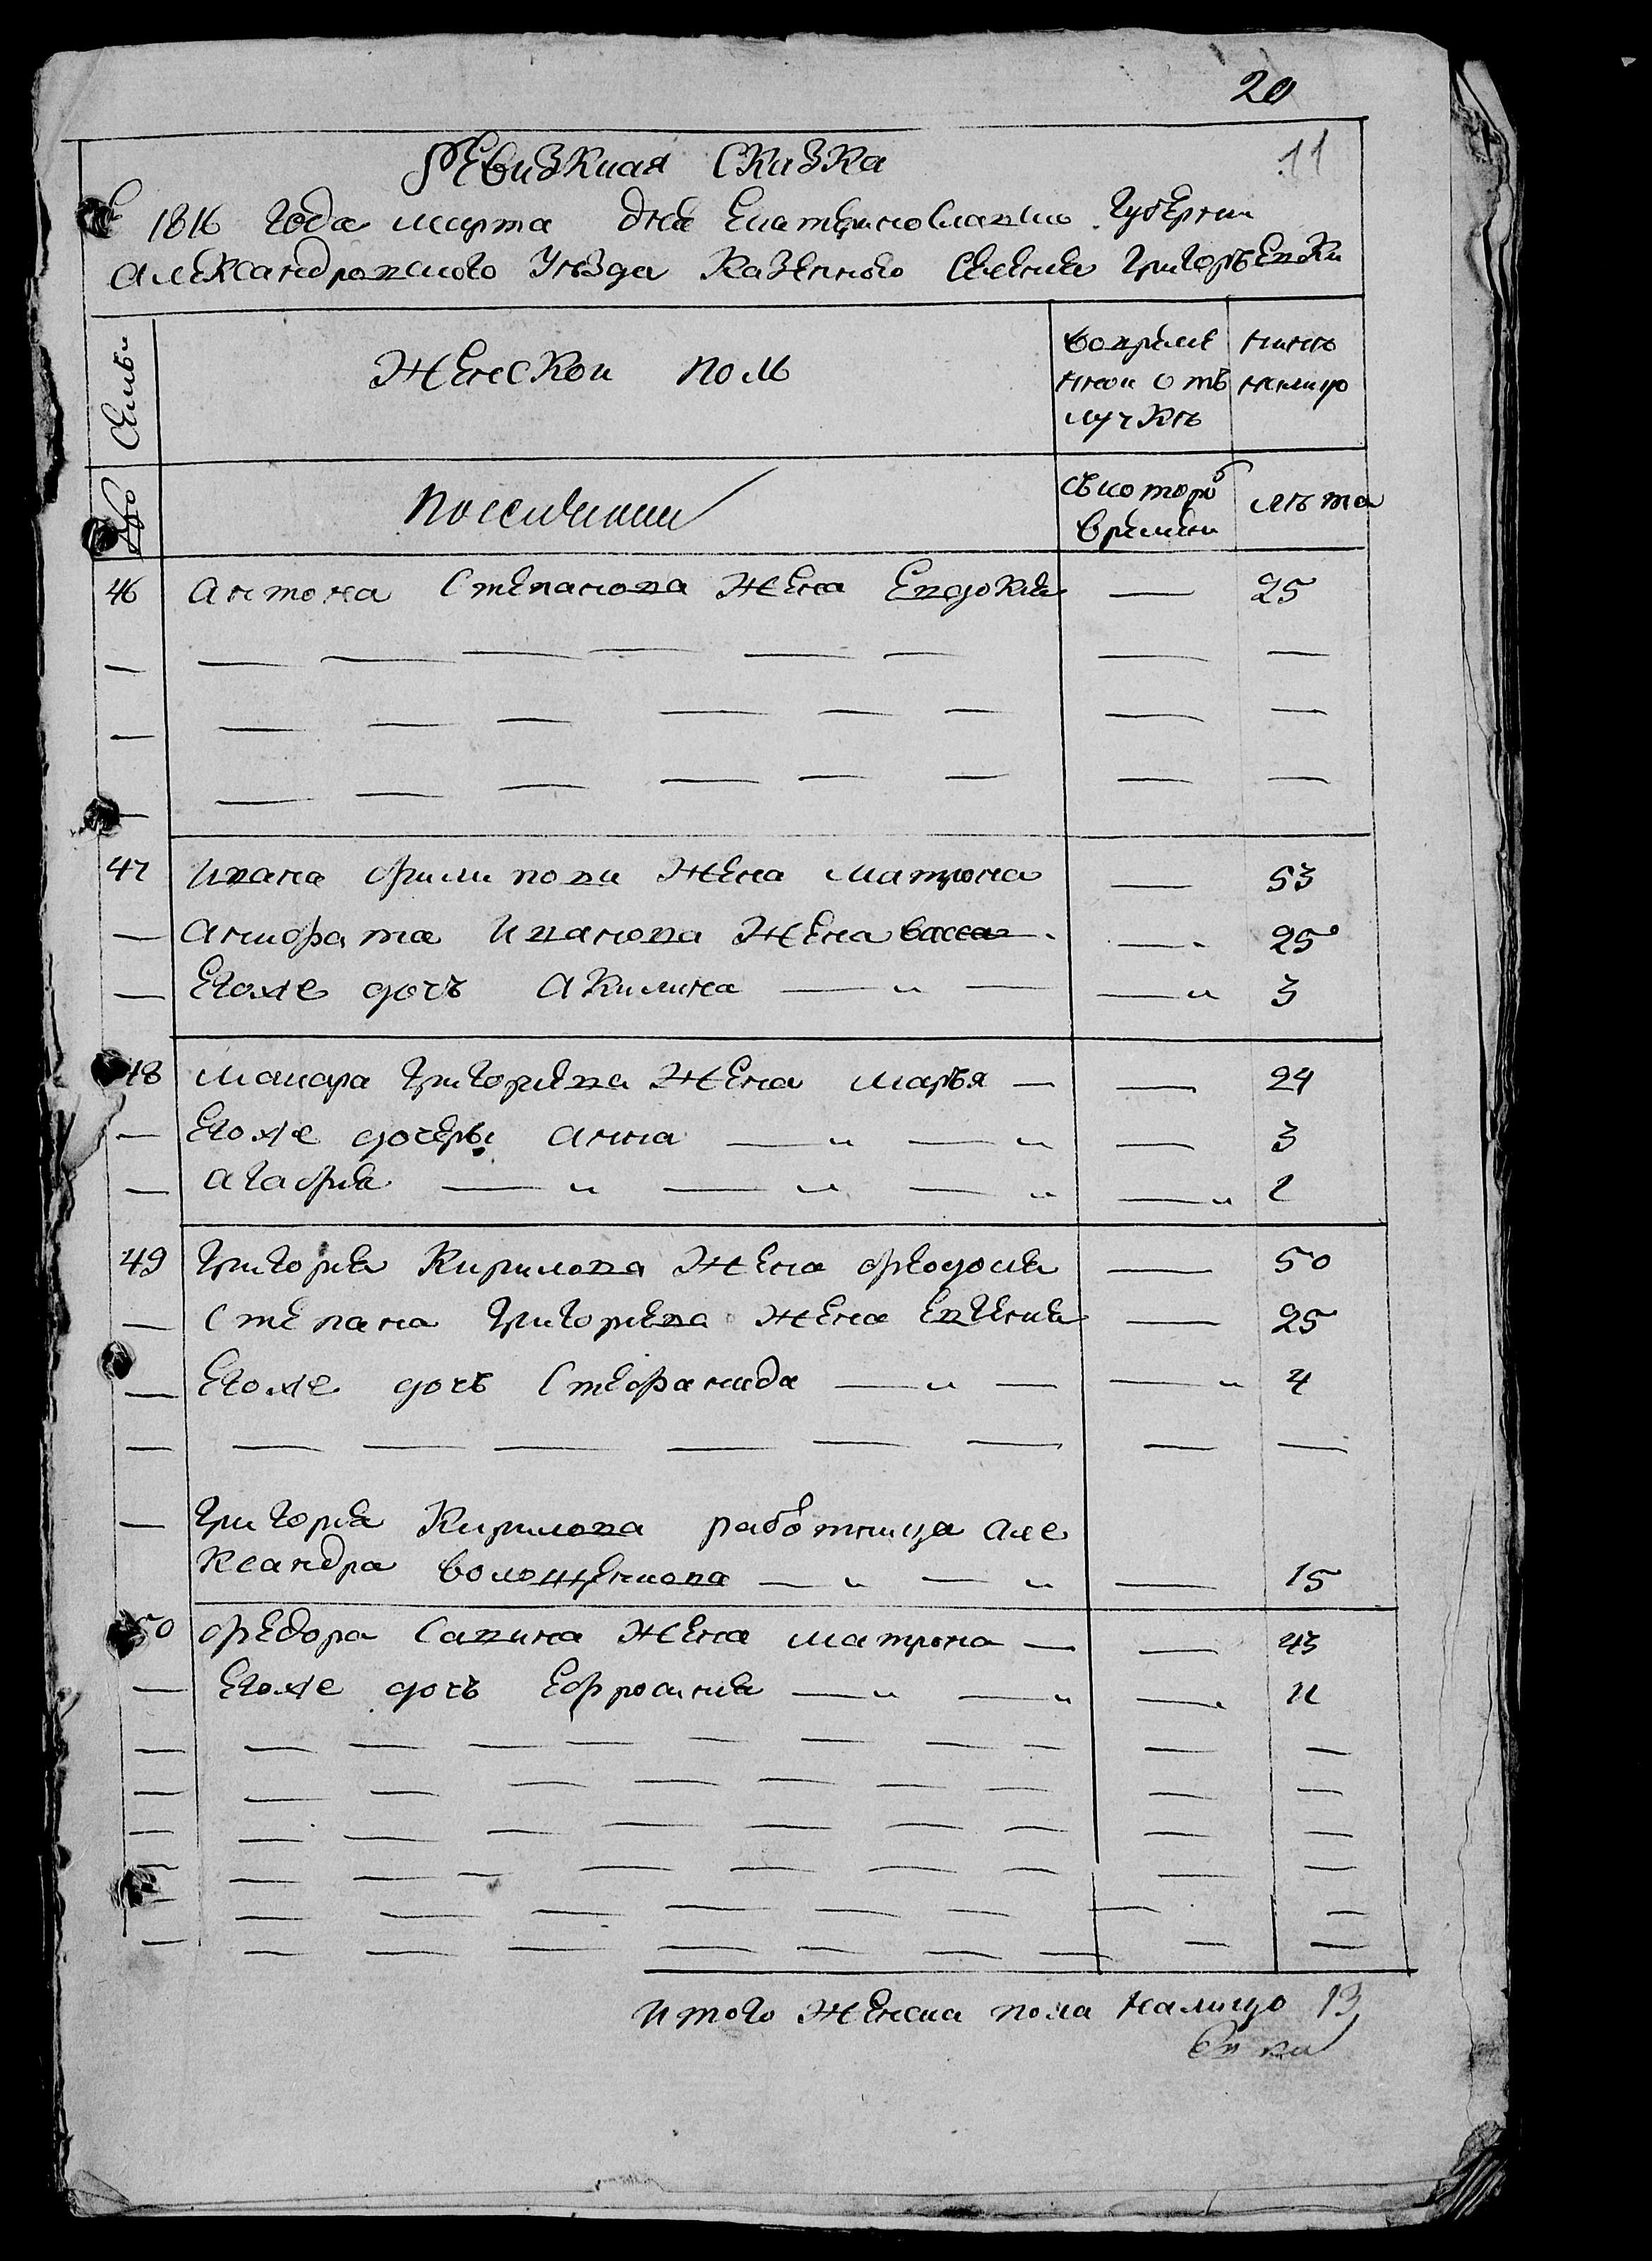 20
Ревизкиая сказка
11
1816 года марта дня Екатериновлавско Губернии
Александровского Уезда Казенного Селения Григорьевки
Семьи
Женской полъ
вовреме
нной отъ
лучкѣ
ныне
налицо
поселянки
съкоторо
времени
лѣта
46 антона Степанова жена Евдокия — 25
47 Ивана филипова жена матрона — 53
— анкифата Иванова жена васса — 25
— Егоже дочь акилина — 3
48 макара григориева жена марья — 24
— Егоже дочеры анна — 3
— агафия — 2
49 григория Кирилова жена феодосия — 50
— Степана григориева жена Евгения — 25
— Егоже дочь Стефанида — 4
— григория Кирилова работница але
ксандра волощенкова — 15
50 федора Савина жена матрона — 43
— Егоже дочь Ефросиния — 11
итого женска пола налицо 13